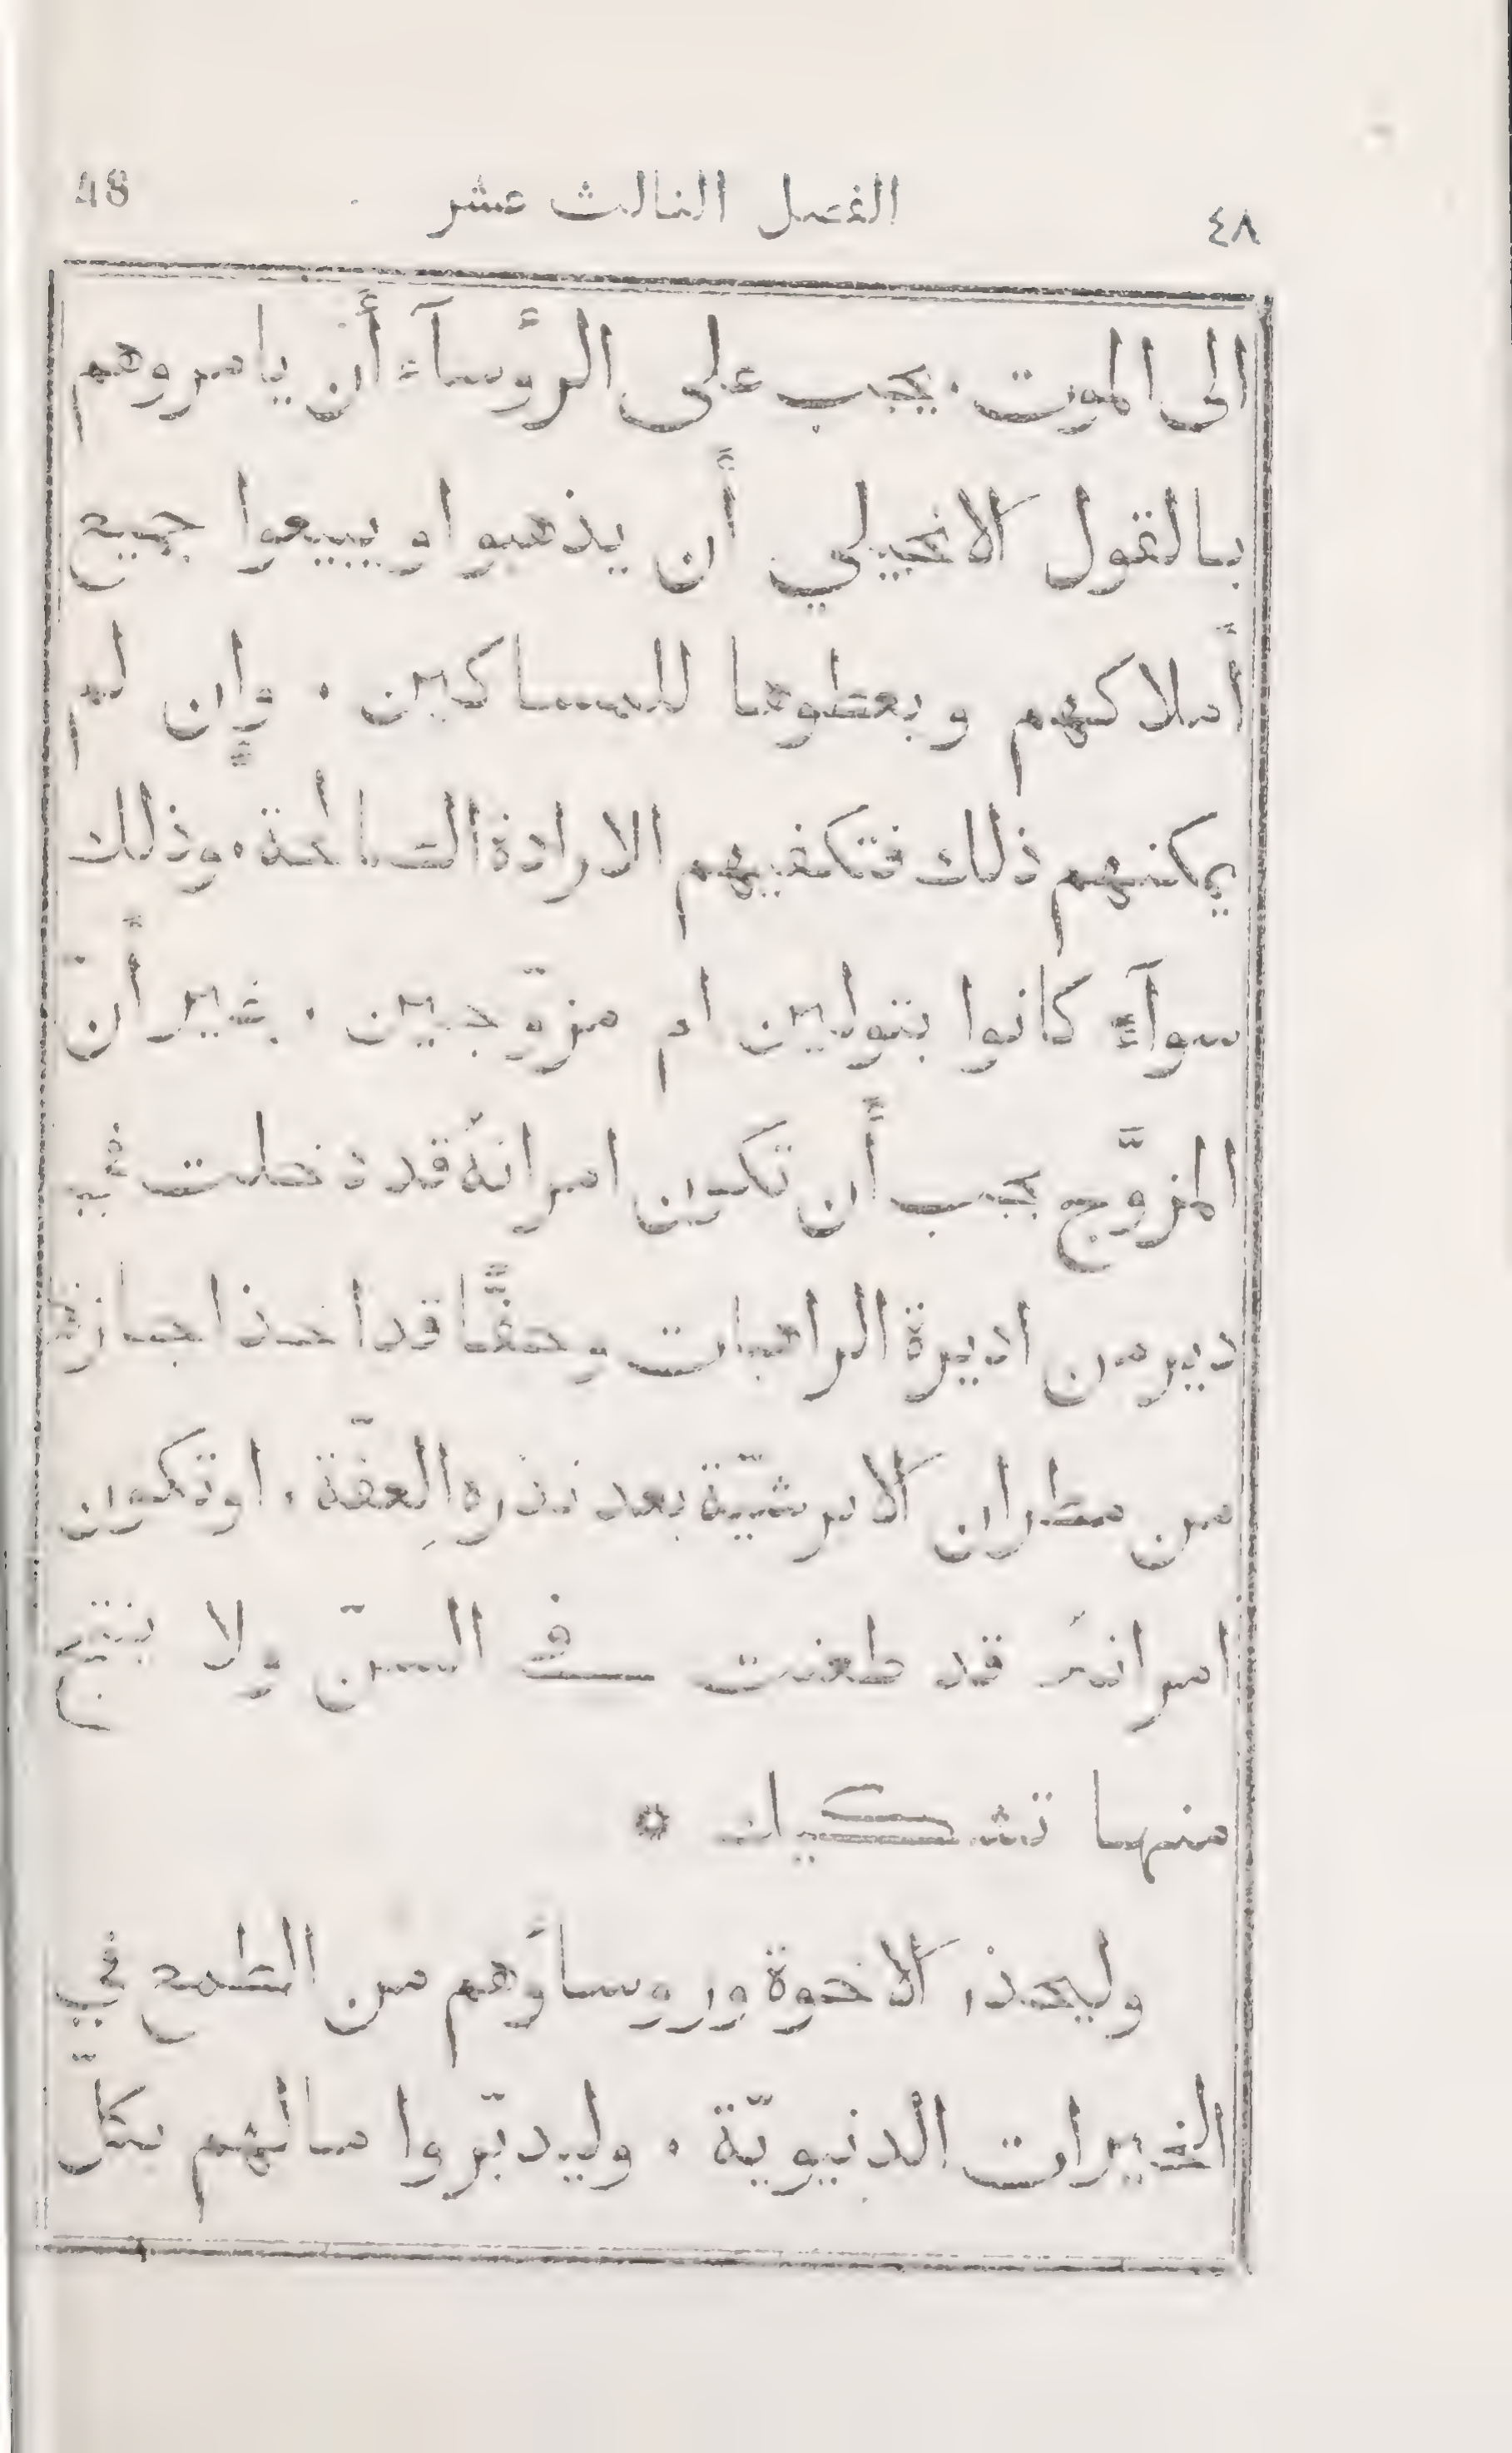 ٤٨ الفصل الثالث عشر 48
الى الموت . يجب على الرؤسآء أن يامروهم
بالقول الانجيلي أن يذهبوا ويبيعوا جميع
أملاكهم ويعطوها للمساكين . وإن لم
يمكنهم ذلك فتكفيهم الارادة الصالحة . وذلك
سوآءً كانوا بتولين ام مزوّجين . غير أنّ
المزوَّج يجب أن تكون امراتهُ قد دخلت في
دير من اديرة الراهبات وحقًّا قد اخذ اجازة
من مطران الابرشيّة بعد نذره العِفّة . او تكون
امراتهُ قد طعنت في السنّ ولا ينتج
منها تشكيك *
وليحذر الاخوة وروساؤهم من الطمع في
الخيرات الدنيويّة . وليدبّروا مالهم بكلّ